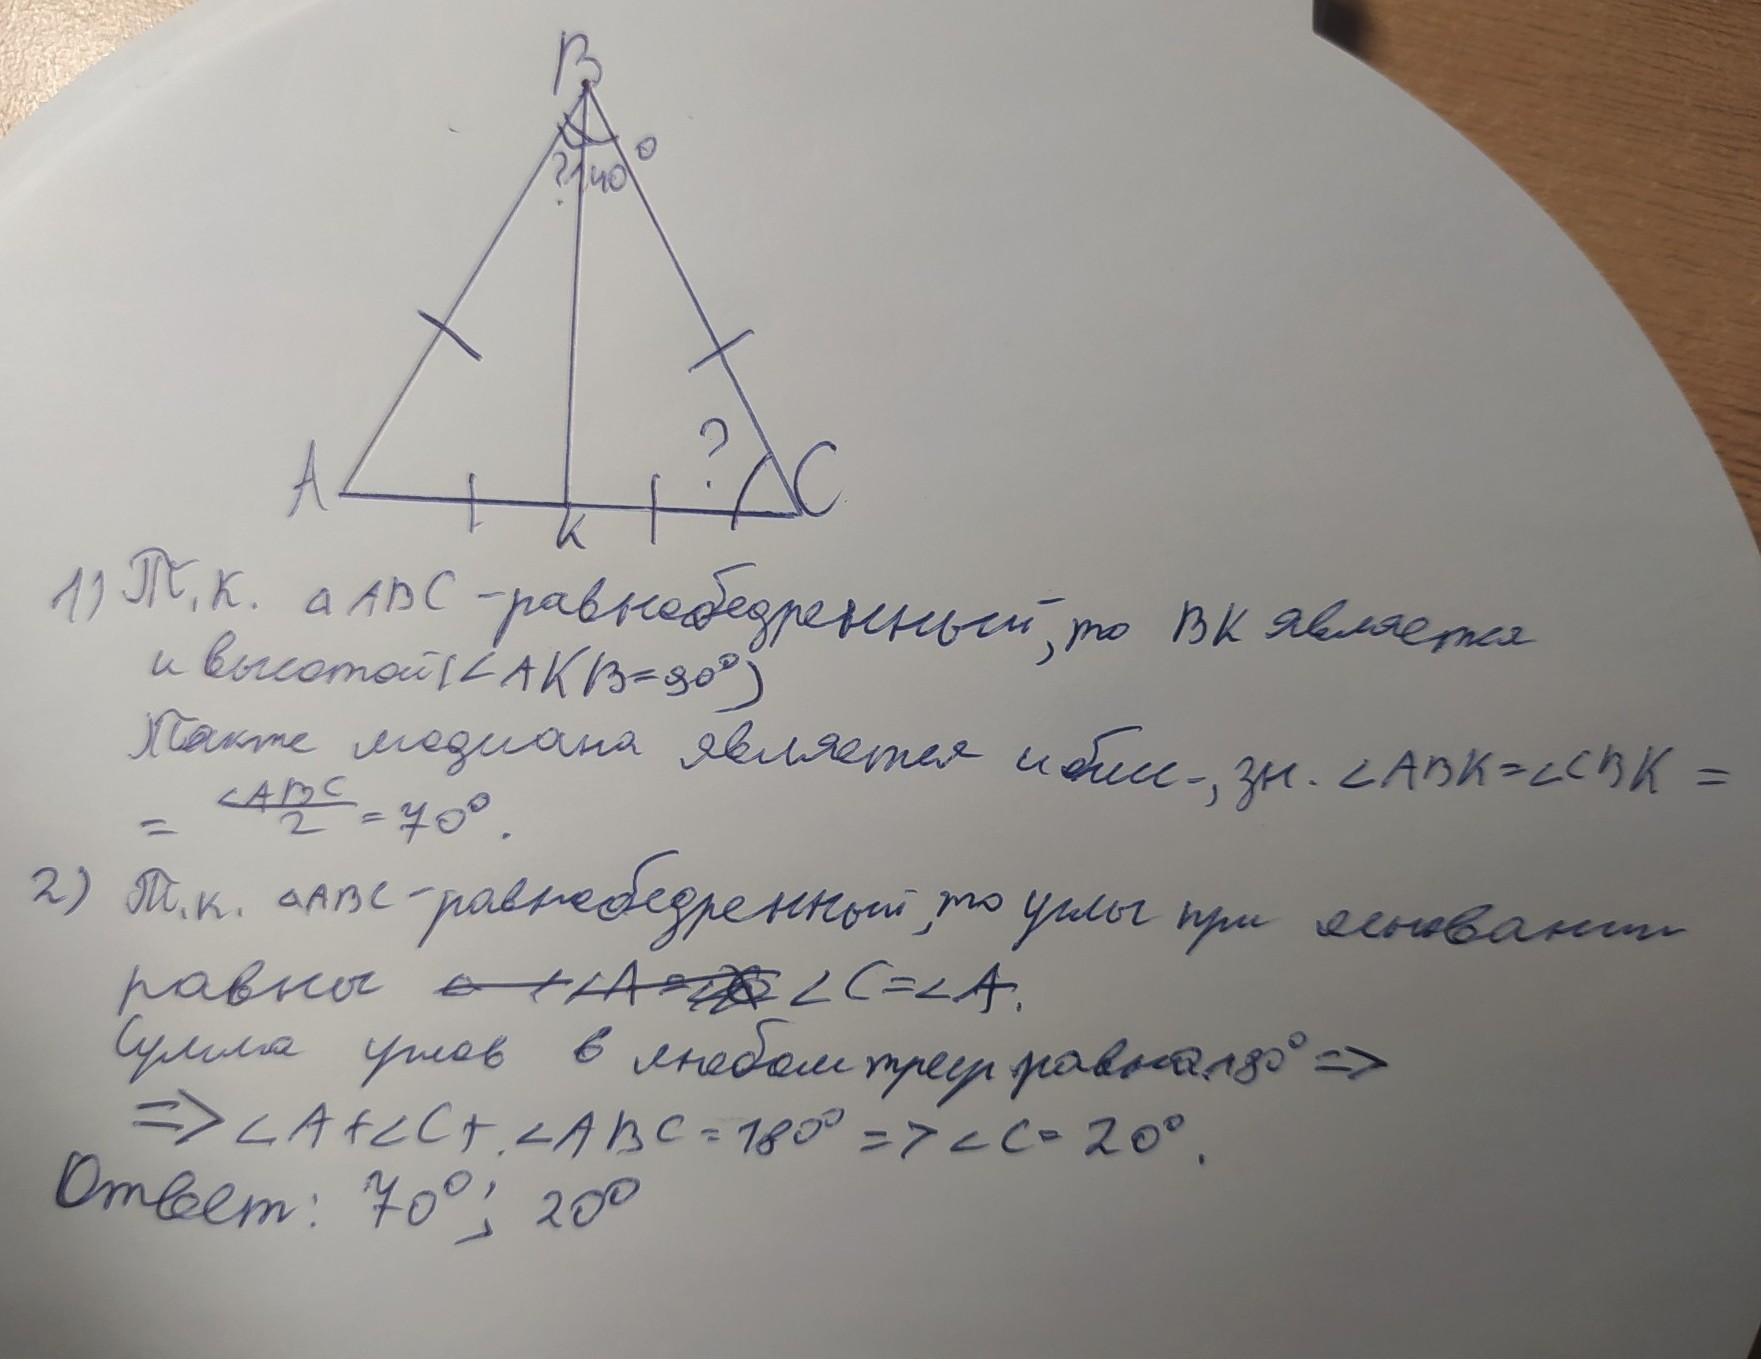 B
? 140°
A
?
C
K
1) Т.к. △ABC - равнобедренный, то BK является
и высотой (∠AKB=90°)
Также медиана является и бис-, зн. ∠ABK=∠CBK=
= ∠ABC/2 = 70°.
2) Т.к. △ABC - равнобедренный, то углы при основании
равны ∠C=∠A.
Сумма углов в любом треуг равна 180° =>
=> ∠A+∠C+∠ABC=180° => ∠C=20°.
Ответ: 70°; 20°